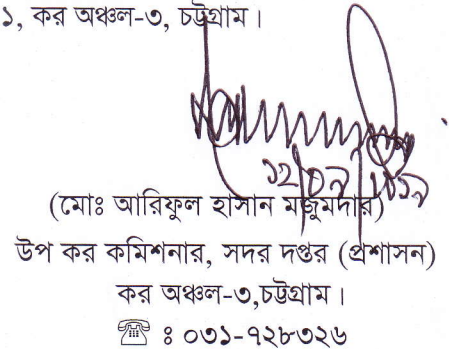 ১, কর অঞ্চল-৩, চট্টগ্রাম।
(মোঃ আরিফুল হাসান মজুমদার)
উপ কর কমিশনার, সদর দপ্তর (প্রশাসন)
কর অঞ্চল-৩,চট্টগ্রাম।
☎ ঃ ০৩১-৭২৮৩২৬